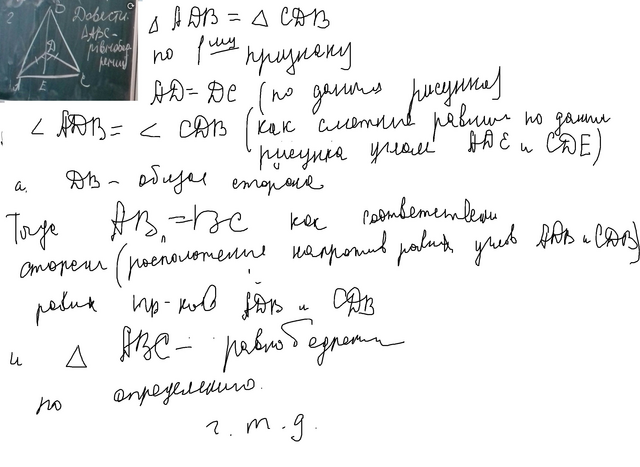 2
B
Довести:
△ABC -
рівнобед
рений
D
A E C
△ ADB = △ CDB
по 1му признаку
AD = DC (по данным рисунка)
∠ ADB = ∠ CDB (как смежные равным по данным
рисунка углам ADE и CDE)
а DB - общая сторона
Тогда AB = BC как соответствен
стороны (расположение напротив равных углов ADB и CDB)
равных тр-ков ADB и CDB
и △ ABC - равнобедренный
по определению.
ч. т. д.